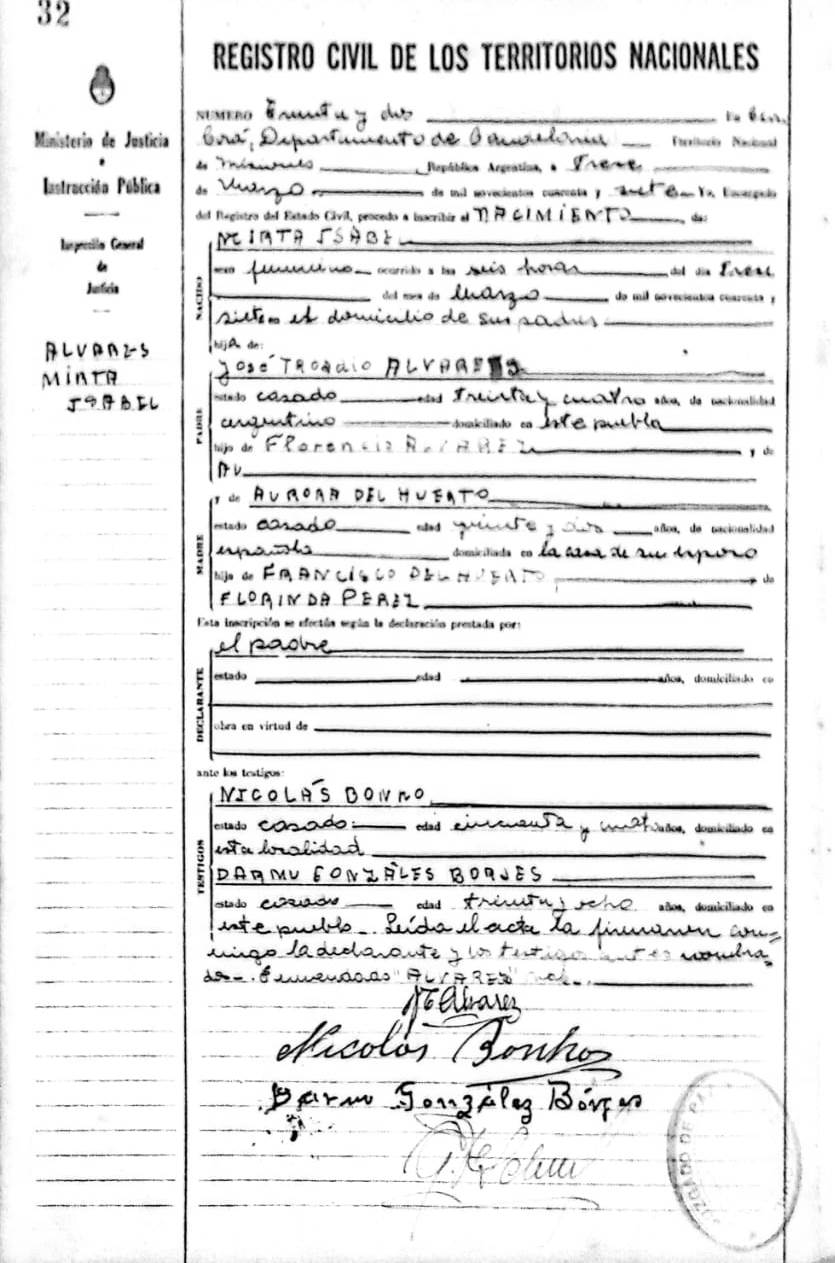 32
REGISTRO CIVIL DE LOS TERRITORIOS NACIONALES
Ministerio de Justicia
e
Instrucción Pública
Inspección General
de
Justicia
ALVARES
MIRTA
ISABEL
NUMERO Treinta y dos En Cer-
Corá, Departamento de Candelaria Territorio Nacional
de Misiones, República Argentina, a Trece
de Marzo de mil novecientos cuarenta y siete Yo, Encargado
del Registro del Estado Civil, procedo a inscribir el NACIMIENTO, de:
NACIDO
MIRTA ISABEL
sexo femenino ocurrido a las seis horas del día trece
del mes de Marzo de mil novecientos cuarenta y
siete en el domicilio de sus padres
hija de:
PADRE
José TRODDIO ALVARES
estado casado edad treinta y cuatro años, de nacionalidad
argentino domiciliado en este pueblo
hijo de Florencia ALVAREZ y de
AV
MADRE
y de AURORA DEL HUERTO
estado casada edad veinte y dos años, de nacionalidad
española domiciliada en la casa de su esposo
hija de FRANCISCO DEL HUERTO, y de
FLORINDA PEREZ
Esta inscripción se efectúa según la declaración prestada por:
DECLARANTE
el padre
estado edad años, domiciliado en
obra en virtud de
ante los testigos:
TESTIGOS
NICOLÁS BONHO
estado casado edad cincuenta y cuatro años, domiciliado en
esta localidad
DARMU GONZÁLES BORJES
estado casado edad treinta y ocho años, domiciliado en
este pueblo. Leída el acta la firmaron con-
migo la declarante y los testigos antes nombra-
dos. Enmendado "ALVARES" vale.
Alvarez
Nicolás Bonho
Darmu González Bórges
JUZGADO DE PAZ